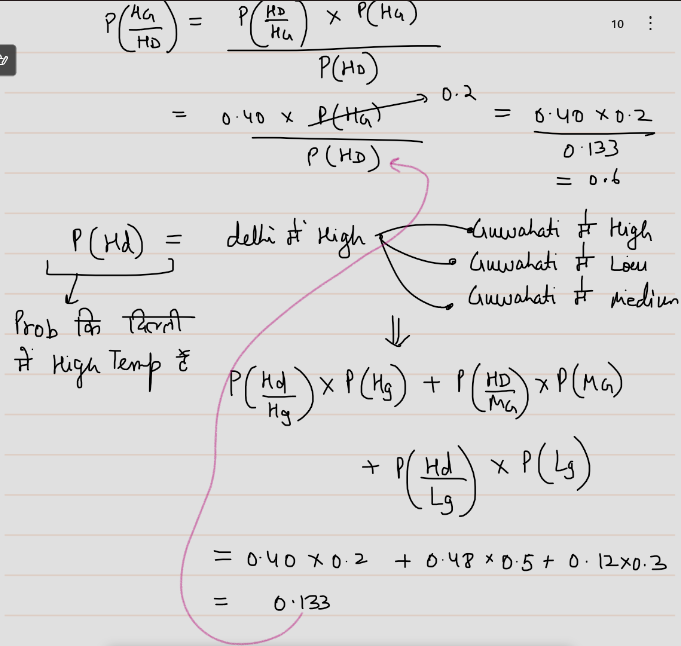 P(HG/HD) = P(HD/HG) × P(HG) / P(HD)
10
= 0.40 × P(HG) / P(HD) → 0.2 = 0.40 × 0.2 / 0.133
= 0.6
P(Hd) = delhi में High
Guwahati में High
Guwahati में Low
Guwahati में Medium
⇓
Prob कि दिल्ली
में High Temp है
P(Hd/Hg) × P(Hg) + P(HD/MG) × P(MG)
+ P(Hd/Lg) × P(Lg)
= 0.40 × 0.2 + 0.48 × 0.5 + 0.12 × 0.3
= 0.133